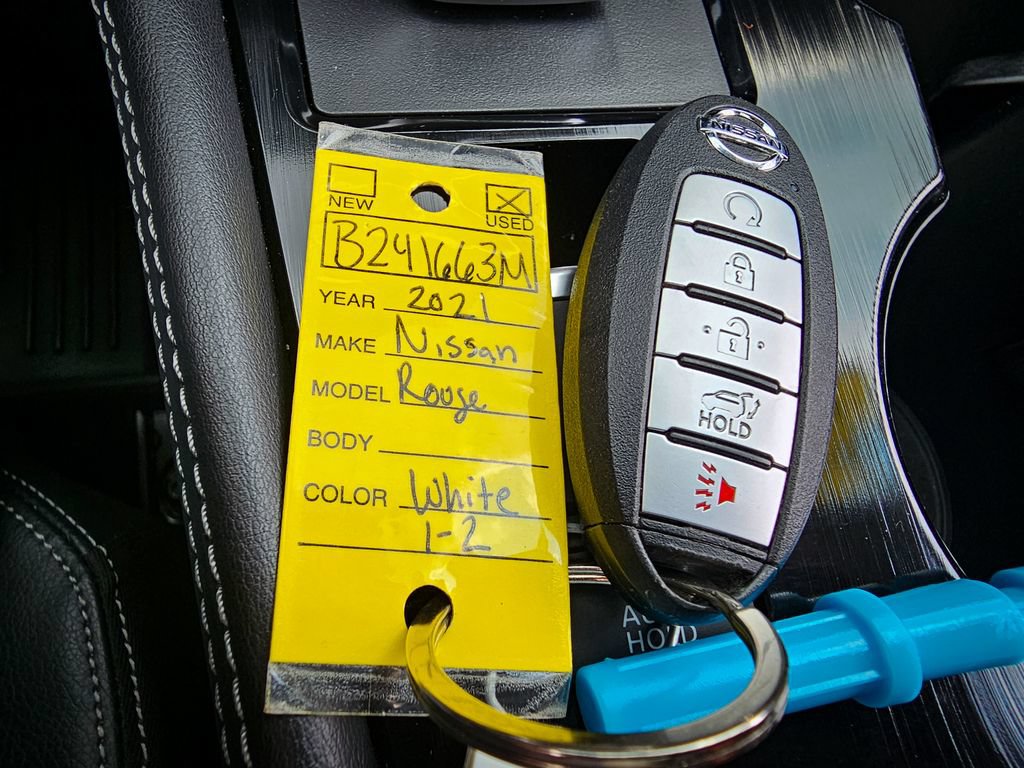 NEW
USED
B241663M
YEAR 2021
MAKE Nissan
MODEL Rouge
BODY
COLOR White
1-2
NISSAN
HOLD
AUTO
HOLD